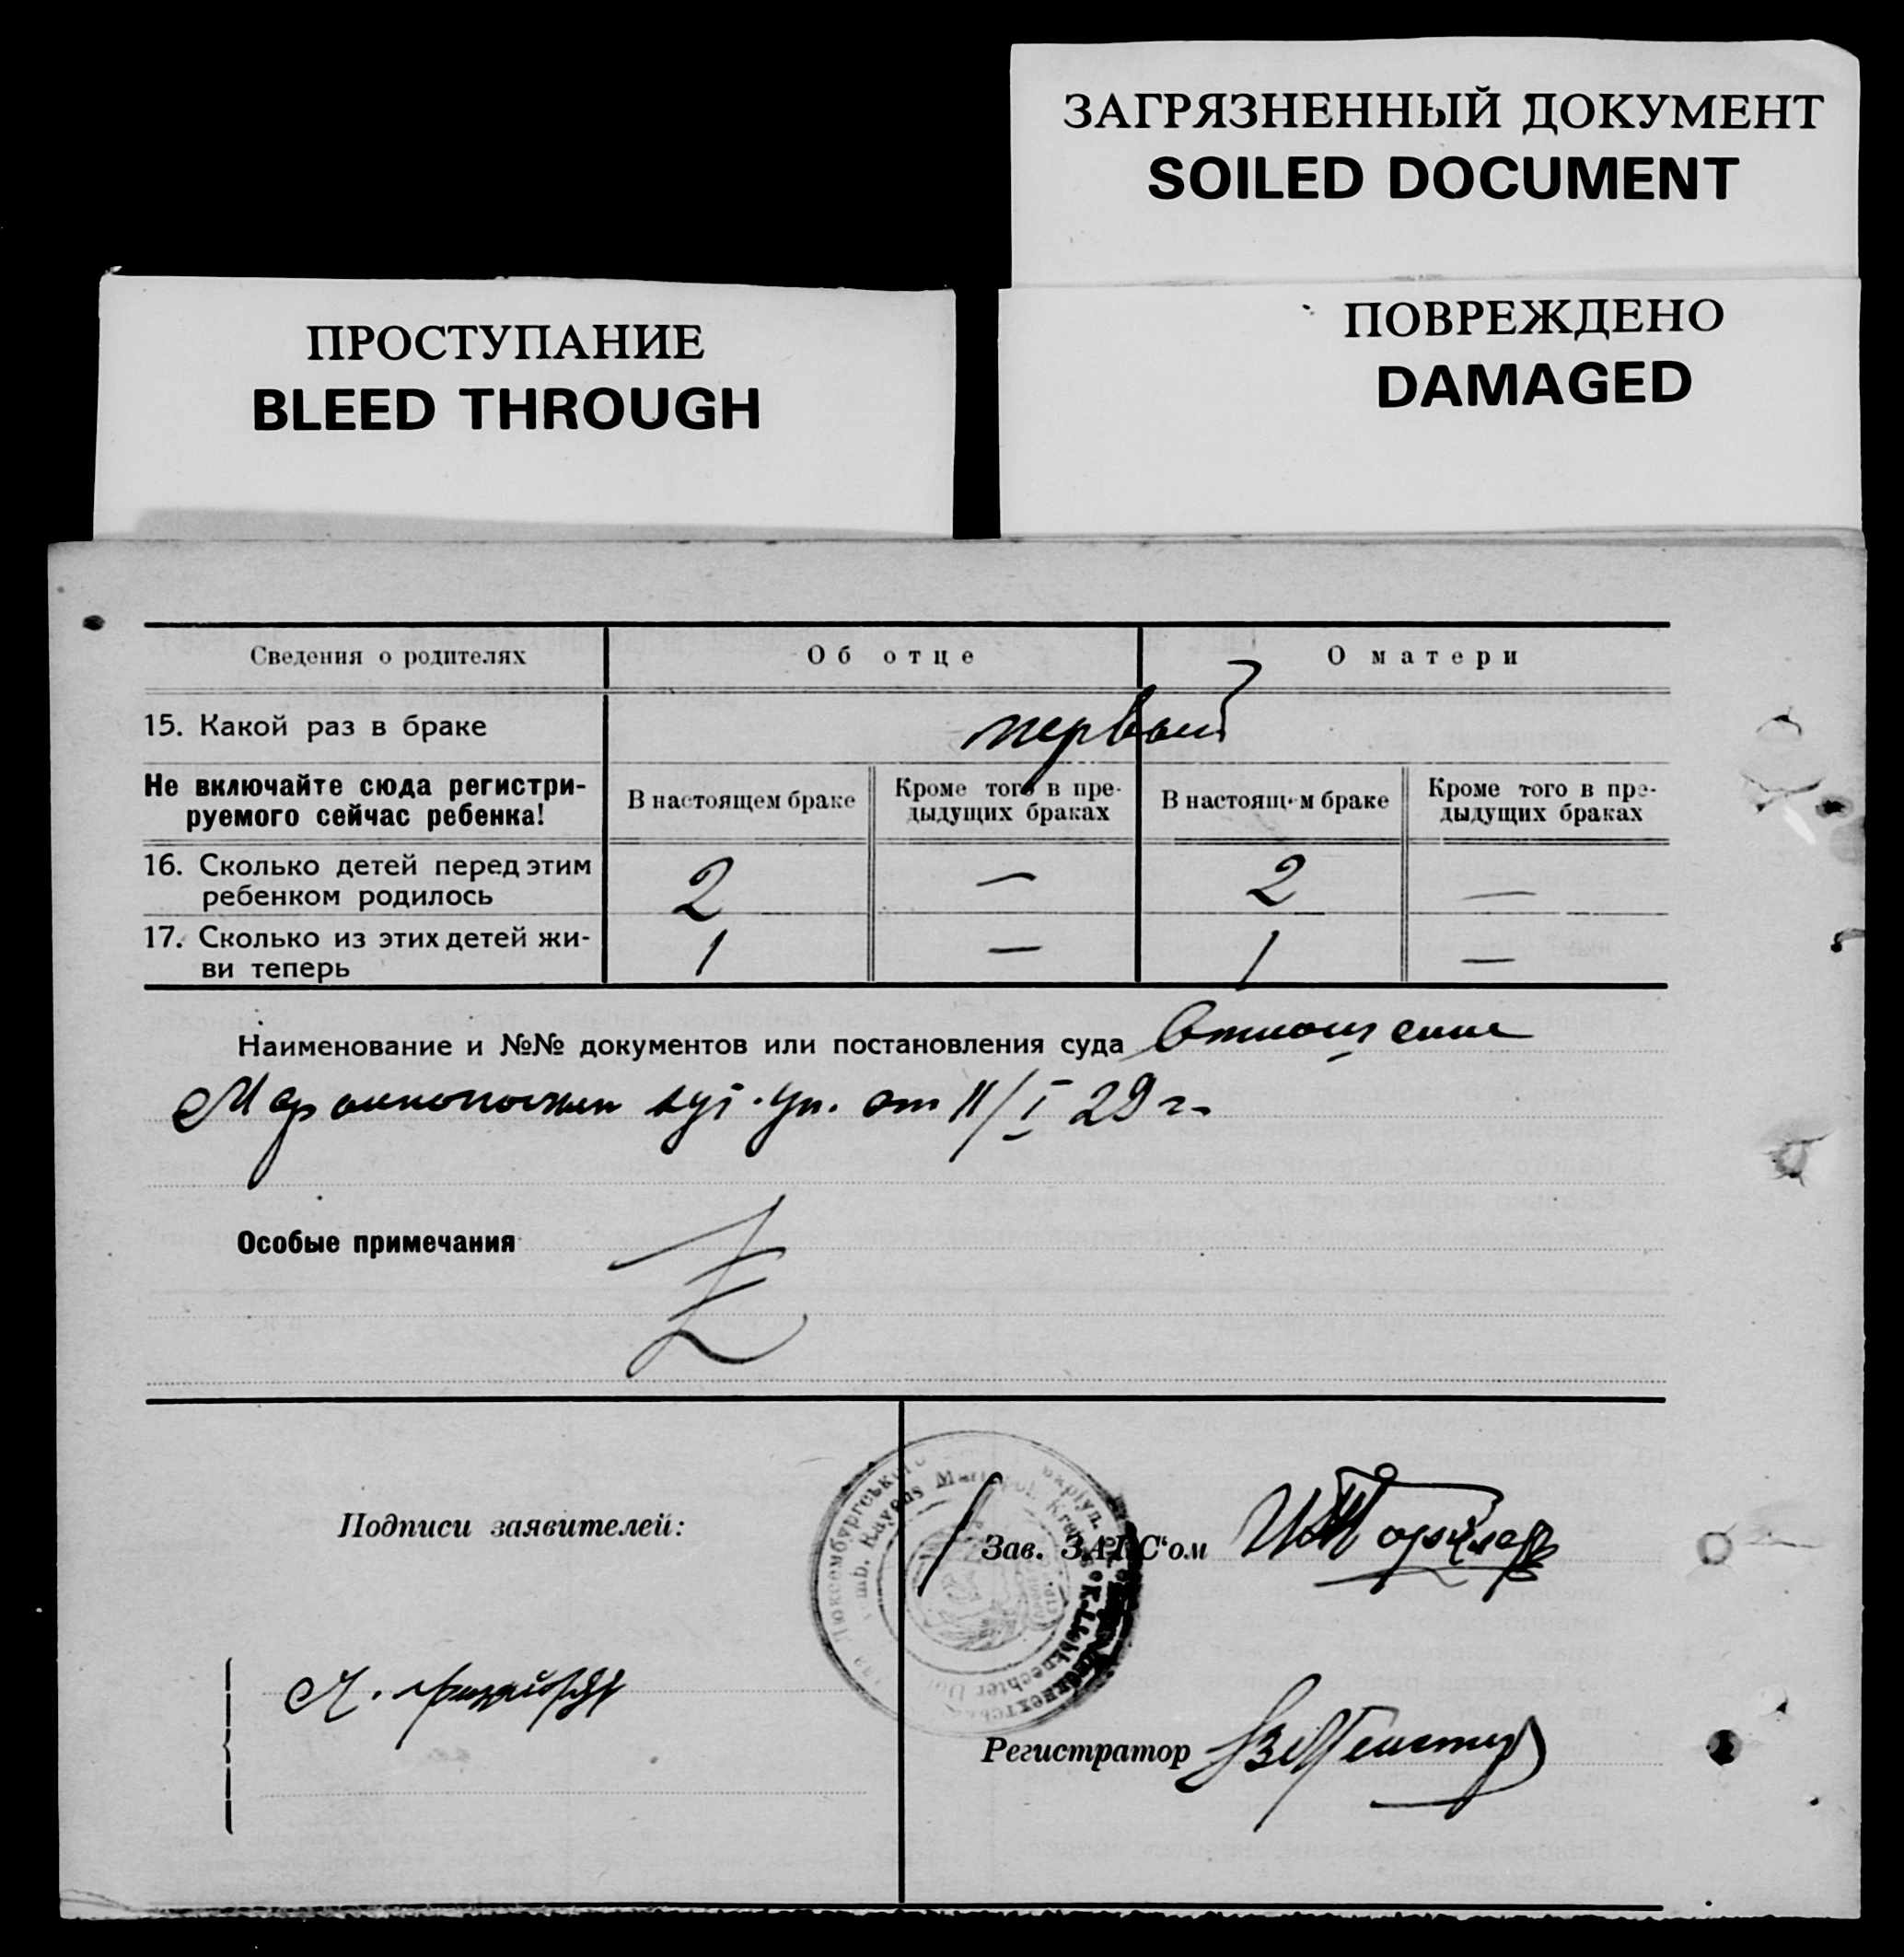 ЗАГРЯЗНЕННЫЙ ДОКУМЕНТ
SOILED DOCUMENT
ПРОСТУПАНИЕ
BLEED THROUGH
ПОВРЕЖДЕНО
DAMAGED
Сведения о родителях Об отце О матери
15. Какой раз в браке первый
Не включайте сюда регистри-
руемого сейчас ребенка!
В настоящем браке
Кроме того в пре-
дыдущих браках
В настоящем браке
Кроме того в пре-
дыдущих браках
16. Сколько детей перед этим
ребенком родилось 2 — 2 —
17. Сколько из этих детей жи-
ви теперь 1 — 1 —
Наименование и №№ документов или постановления суда Отношение
от 11/I 29 г.
Особые примечания
Подписи заявителей:
Зав. ЗАГС‘ом
Регистратор